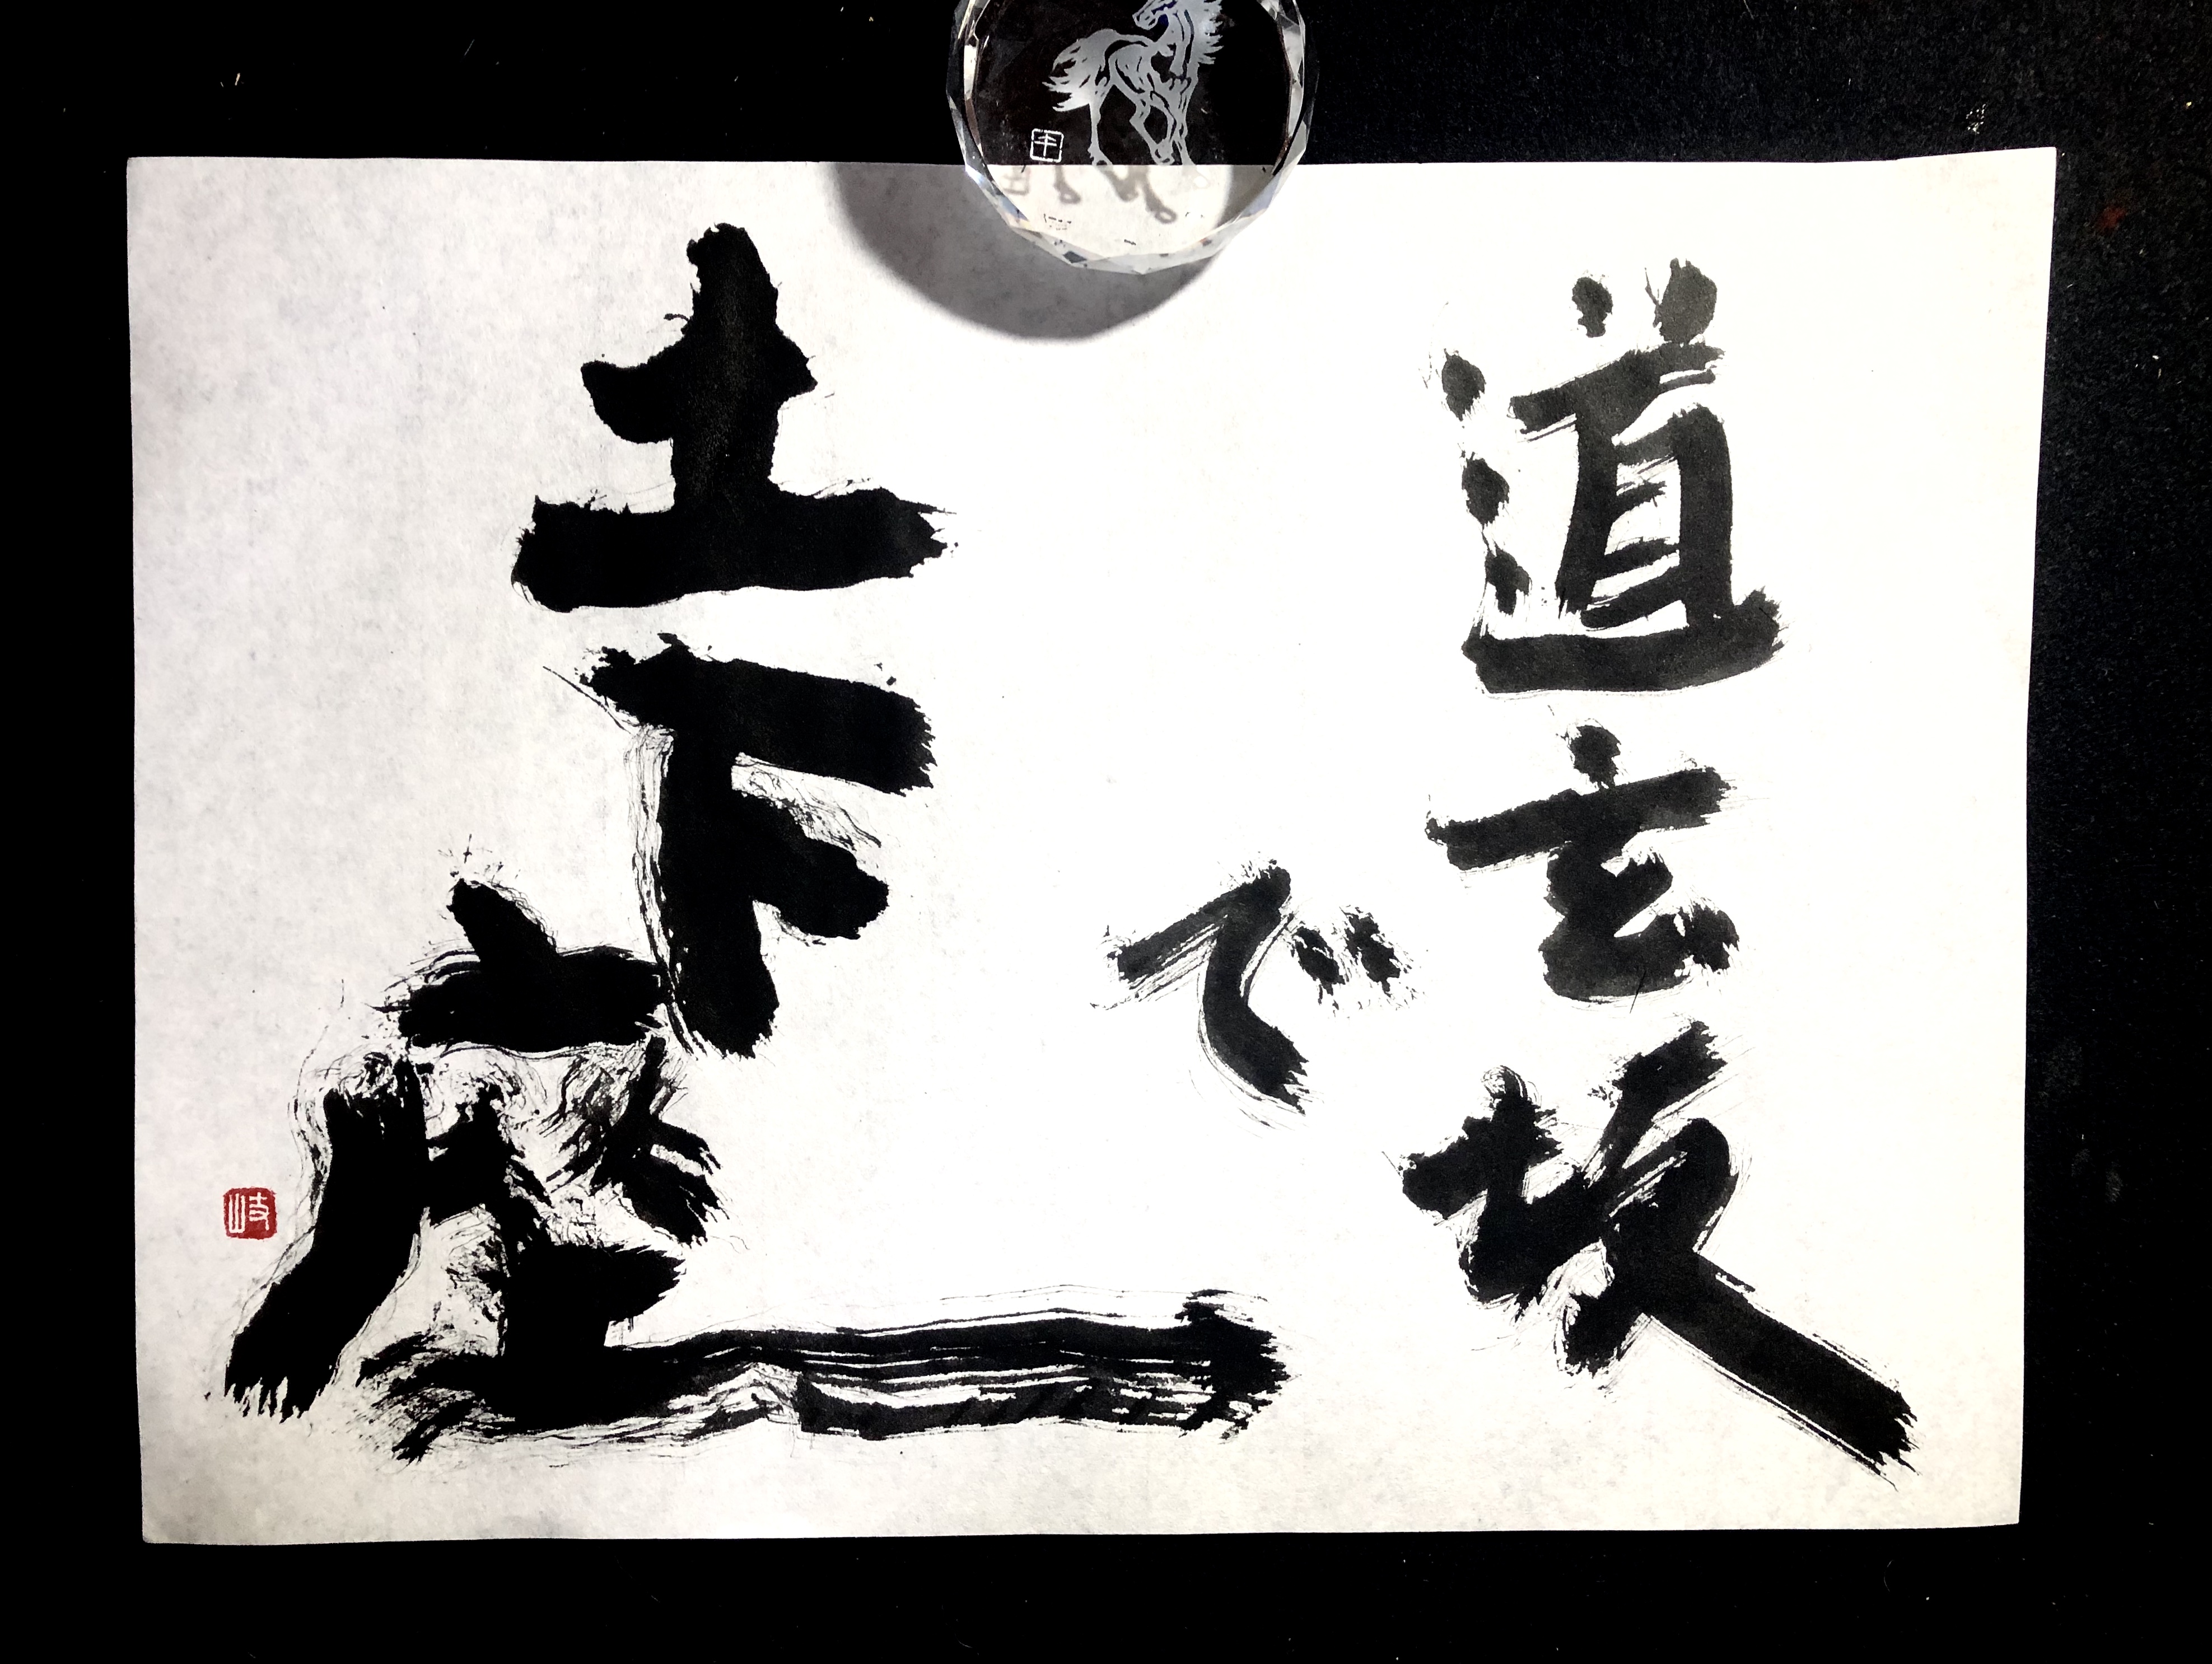 道玄坂
で
土下座
岐